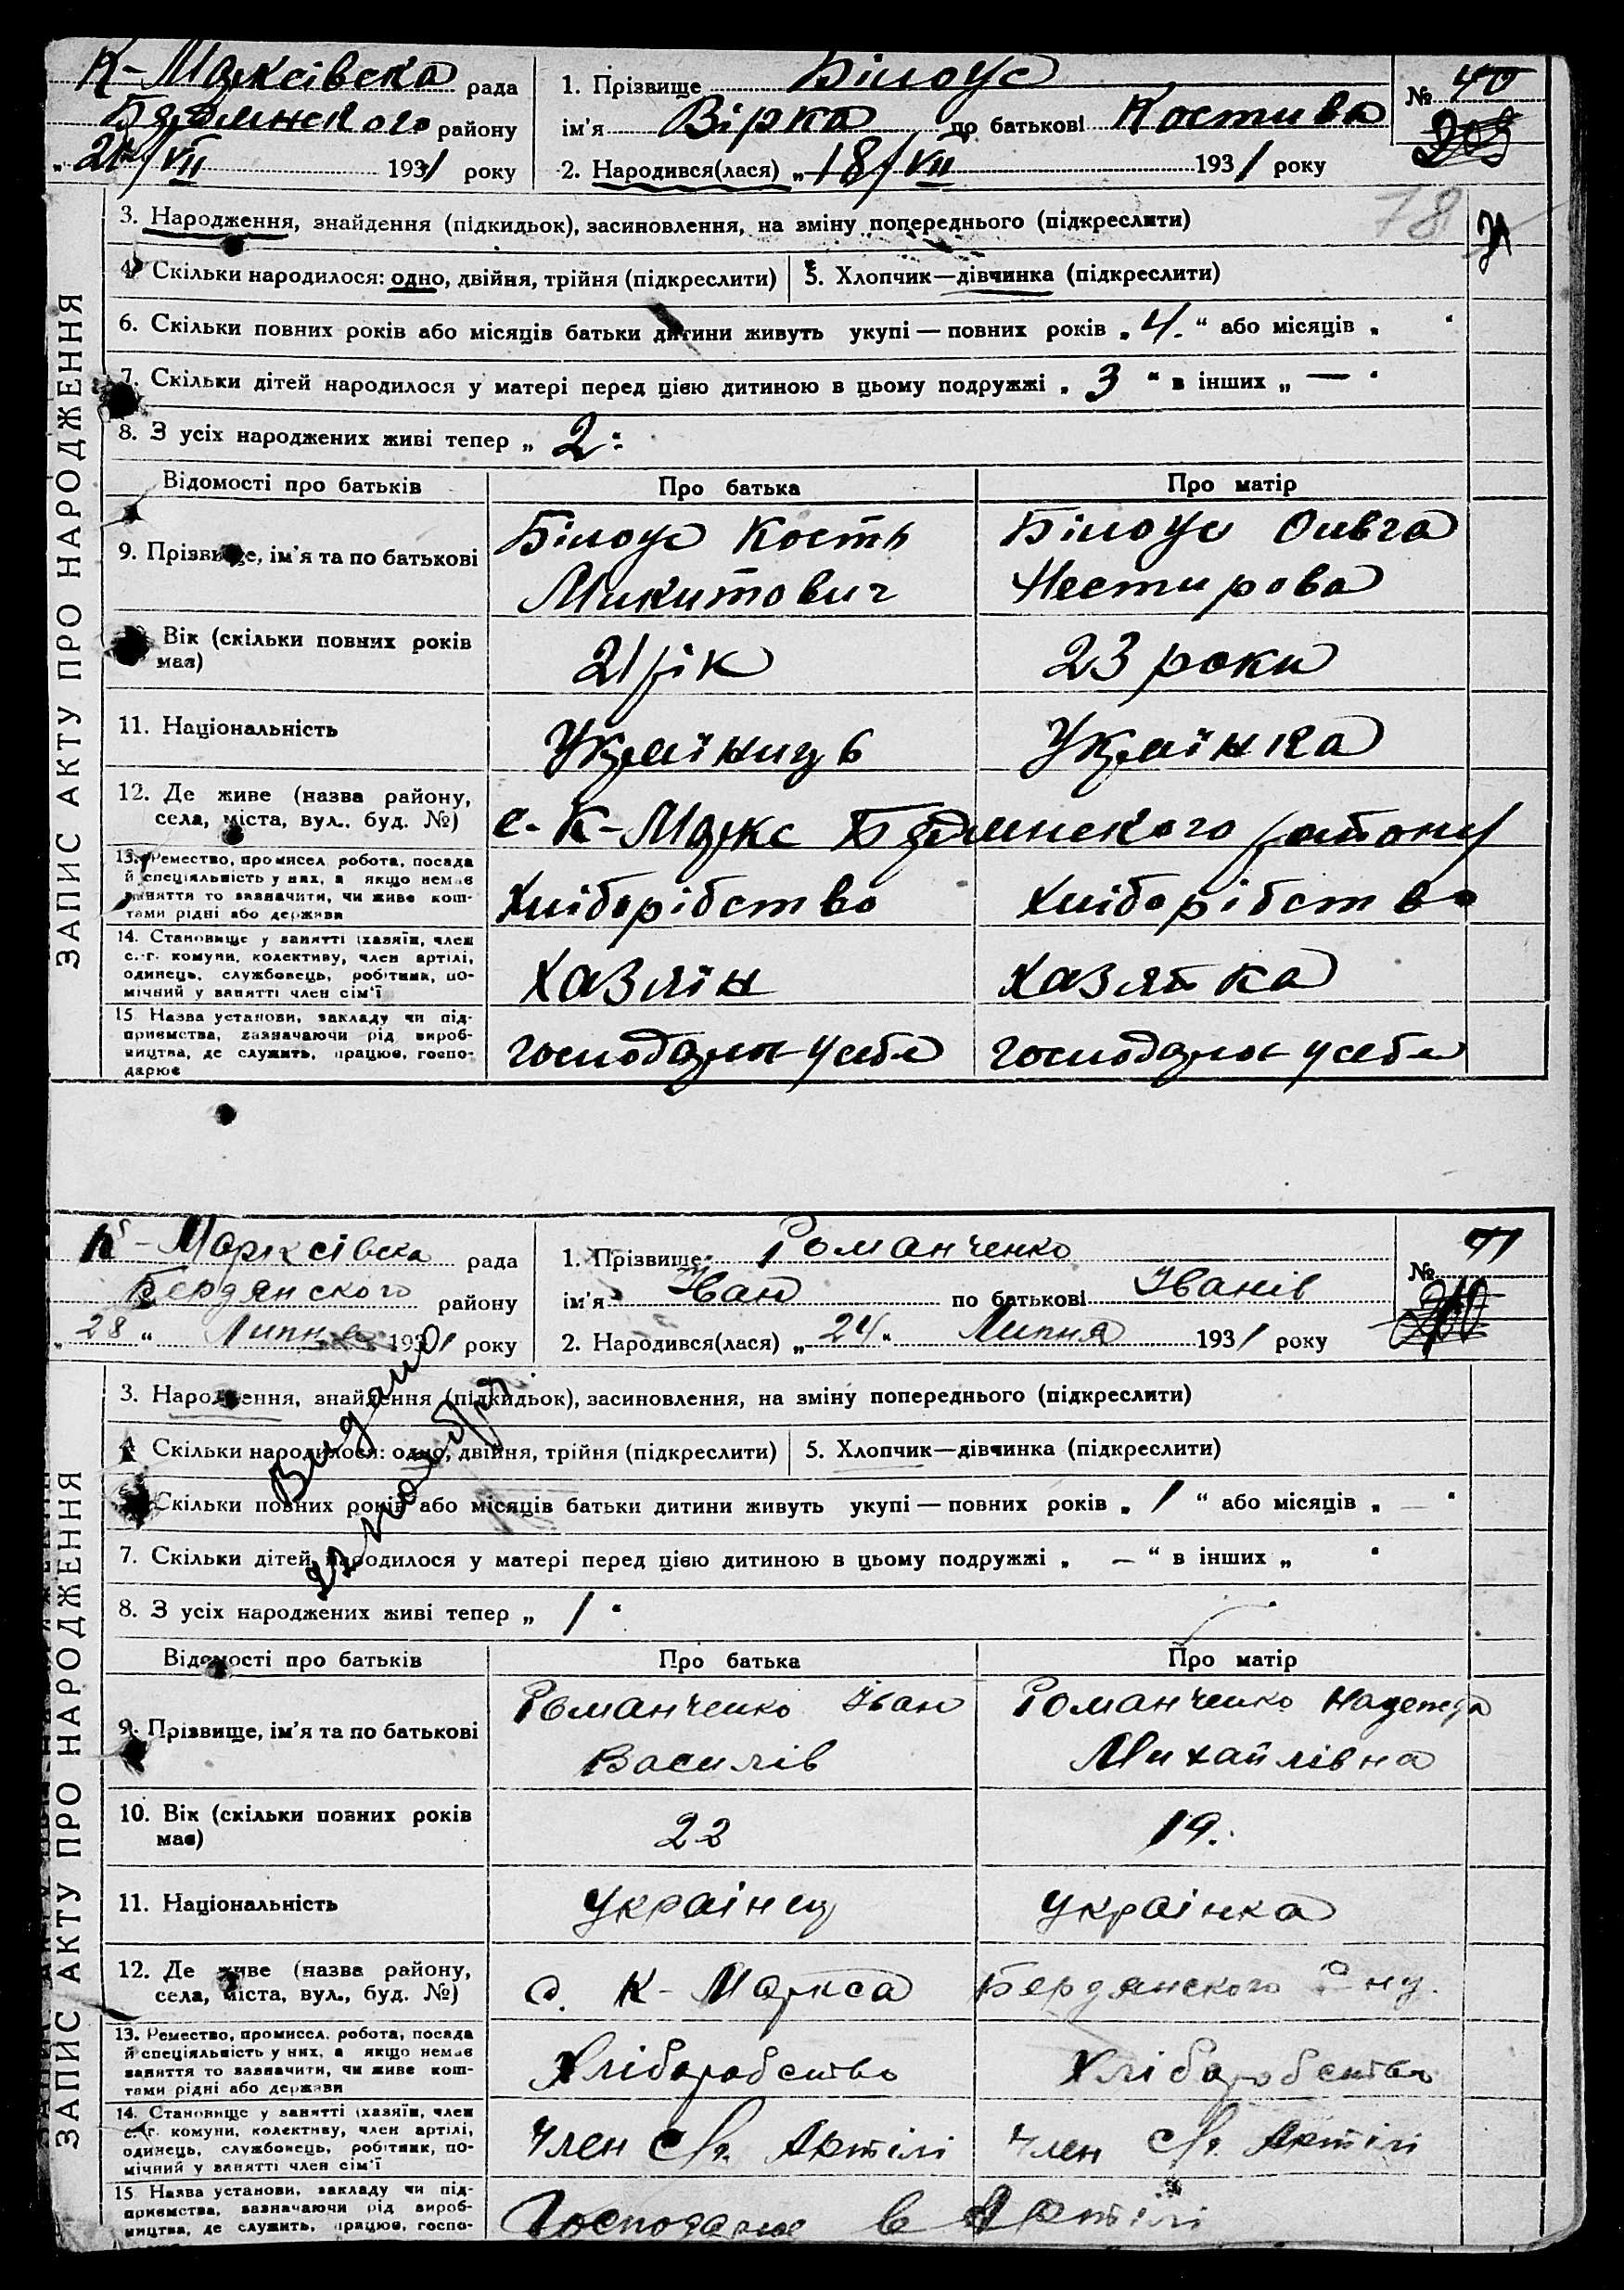 К-Марксівска рада
Бердянского району
„ 21/VII 1931 року
1. Прізвище Білоус
ім'я Вірка по батькові Костива
2. Народився(лася) „ 18/VII 1931 року
№ 40
203
78
ЗАПИС АКТУ ПРО НАРОДЖЕННЯ
3. Народження, знайдення (підкидьок), засиновлення, на зміну попереднього (підкреслити)
4. Скільки народилося: одно, двійня, трійня (підкреслити) 5. Хлопчик—дівчинка (підкреслити)
6. Скільки повних років або місяців батьки дитини живуть укупі — повних років „ 4. “ або місяців „ “
7. Скільки дітей народилося у матері перед цією дитиною в цьому подружжі „ 3 “ в інших „ — “
8. З усіх народжених живі тепер „ 2 “
Відомості про батьків Про батька Про матір
9. Прізвище, ім'я та по батькові
Білоус Кость
Микитович
Білоус Ольга
Нестирова
Вік (скільки повних років
має)
21 рік
23 роки
11. Національність
Українець
Українка
12. Де живе (назва району,
села, міста, вул., буд. №)
с. К-Маркс Бердянского району
13. Ремество, промисел, робота, посада
й спеціяльність у них, а якщо немає
заняття то зазначити, чи живе кош-
тами рідні або держави
Хліборібство
Хліборібство
14. Становище у занятті (хазяїн, член
с.-г. комуни, колективу, член артілі,
одинець, службовець, робітник, по-
мічний у занятті член сім'ї
Хазяїн
Хазяйка
15. Назва установи, закладу чи під-
приємства, зазначаючи рід вироб-
ництва, де служить, працює, госпо-
дарює
господарює у себе
господарює у себе
К-Марксівска рада
Бердянского району
„ 28 “ Липня 1931 року
1. Прізвище Романченко
ім'я Іван по батькові Іванів
2. Народився(лася) „ 24 “ Липня 1931 року
№ 41
ЗАПИС АКТУ ПРО НАРОДЖЕННЯ
3. Народження, знайдення (підкидьок), засиновлення, на зміну попереднього (підкреслити)
Видано
4. Скільки народилося: одно, двійня, трійня (підкреслити) 5. Хлопчик—дівчинка (підкреслити)
Скільки повних років або місяців батьки дитини живуть укупі — повних років „ 1 “ або місяців „ — “
7. Скільки дітей народилося у матері перед цією дитиною в цьому подружжі „ — “ в інших „ “
8. З усіх народжених живі тепер „ 1 “
Відомості про батьків Про батька Про матір
9. Прізвище, ім'я та по батькові
Романченко Іван
Василів
Романченко Надежда
Михайлівна
10. Вік (скільки повних років
має)
22
19.
11. Національність
українец
українка
12. Де живе (назва району,
села, міста, вул., буд. №)
с. К-Маркса Бердянского р-ну.
13. Ремество, промисел, робота, посада
й спеціяльність у них, а якщо немає
заняття то зазначити, чи живе кош-
тами рідні або держави
Хліборобство
Хліборобство
14. Становище у занятті (хазяїн, член
с.-г. комуни, колективу, член артілі,
одинець, службовець, робітник, по-
мічний у занятті член сім'ї
Член с/г. Артілі
Член с/г. Артілі
15. Назва установи, закладу чи під-
приємства, зазначаючи рід вироб-
ництва, де служить, працює, госпо-
Господарює в Артілі